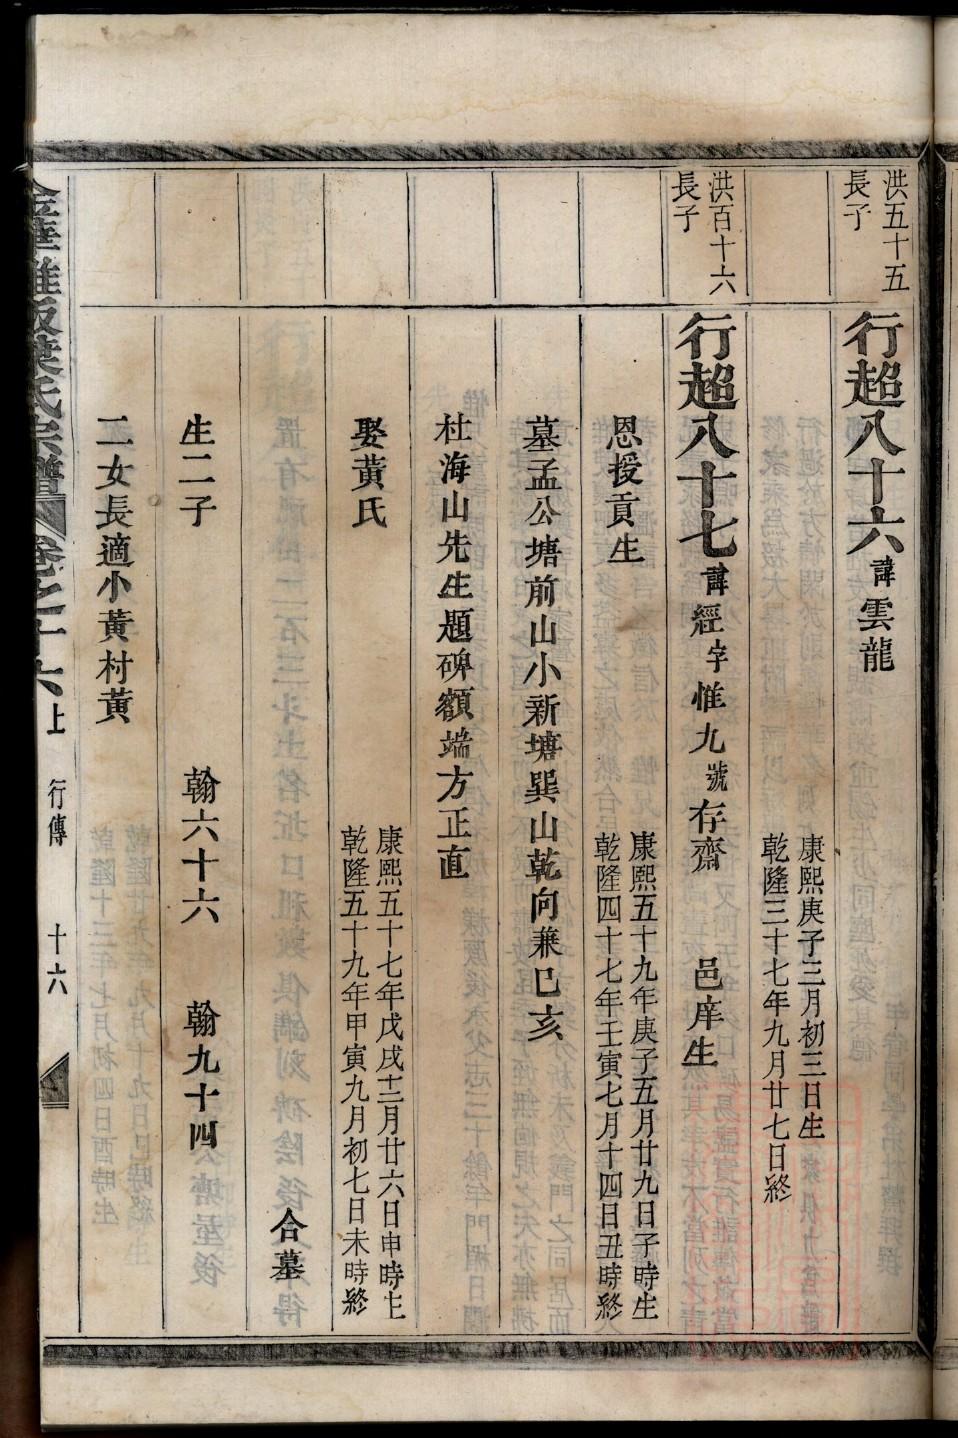 洪五十五
長子
行超八十六 諱雲龍
康熙庚子三月初三日生
乾隆三十七年九月廿七日終
洪百十六
長子
行超八十七 諱經字惟九號存齋 邑庠生
恩授貢生
康熙五十九年庚子五月廿九日子時生
乾隆四十七年壬寅七月十四日丑時終
墓孟公塘前山小新塘巽山乾向兼巳亥
杜海山先生題碑額端方正直
娶黃氏
康熙五十七年戊戌十二月廿六日申時生
乾隆五十九年甲寅九月初七日未時終
合墓
生二子 翰六十六 翰九十四
二女長適小黃村黃
金華雅畈葉氏宗譜 卷之十六上 行傳 十六